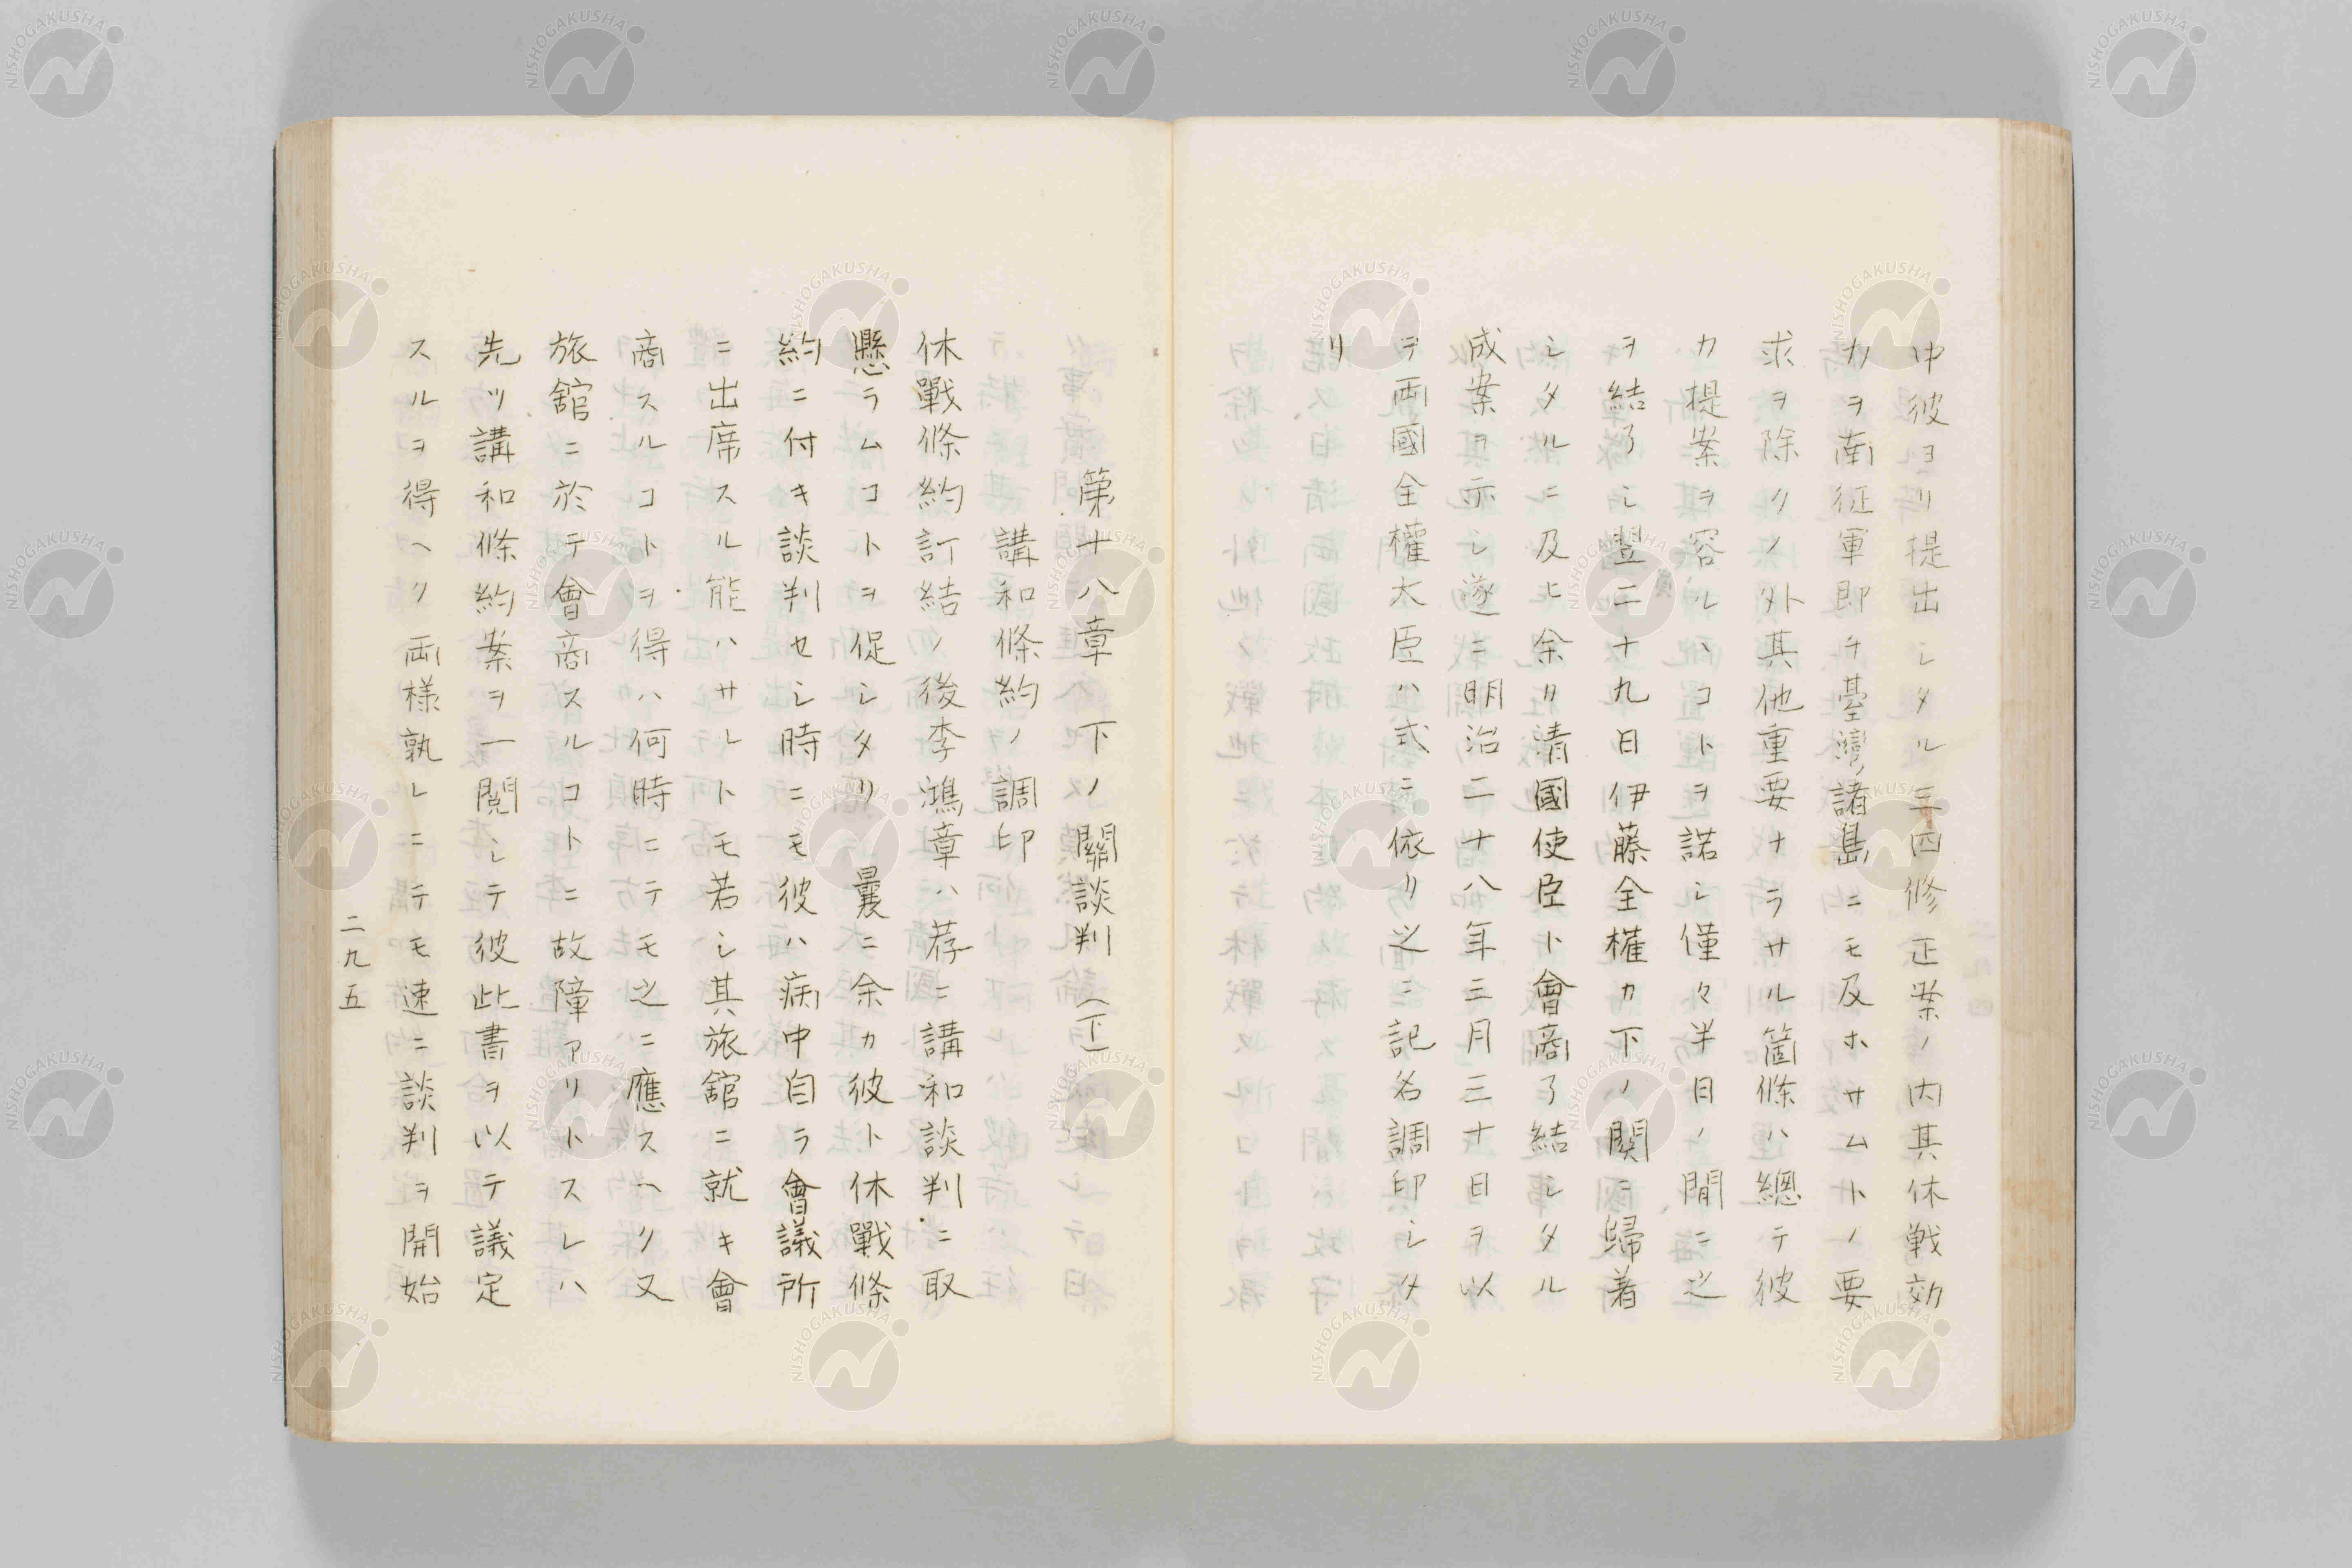 中彼ヨリ提出シタル三四修正案ノ内其休戦効
力ヲ南征軍即チ臺灣諸島ニモ及ホサムトノ要
求ヲ除クノ外其他重要ナラサル箇條ハ總テ彼
カ提案ヲ容ルヽコトヲ諾シ僅々半日ノ間ニ之
ヲ結了シ翌二十九日伊藤全權カ下ノ関ニ歸著
シタルニ及ヒ余カ清國使臣ト會商了結シタル
成案ヲ示シ遂ニ明治二十八年三月三十日ヲ以
ヲ両國全權大臣ハ式ニ依リ之ニ記名調印シタ
リ
第十八章　下ノ關談判（下）
講和條約ノ調印
休戰條約訂結ノ後李鴻章ハ荐ニ講和談判ニ取
懸ラムコトヲ促シタリ　曩ニ余カ彼ト休戰條
約ニ付キ談判セシ時ニモ彼ハ病中自ラ會議所
ニ出席スル能ハサレトモ若シ其旅舘ニ就キ會
商スルコトヲ得ハ何時ニテモ之ニ應スヘク又
旅舘ニ於テ會商スルコトニ故障アリトスレハ
先ツ講和條約案ヲ一閲シテ彼此書ヲ以テ議定
スルヲ得ヘク両様孰レニテモ速ニ談判ヲ開始
二九五
NISHOGAKUSHA